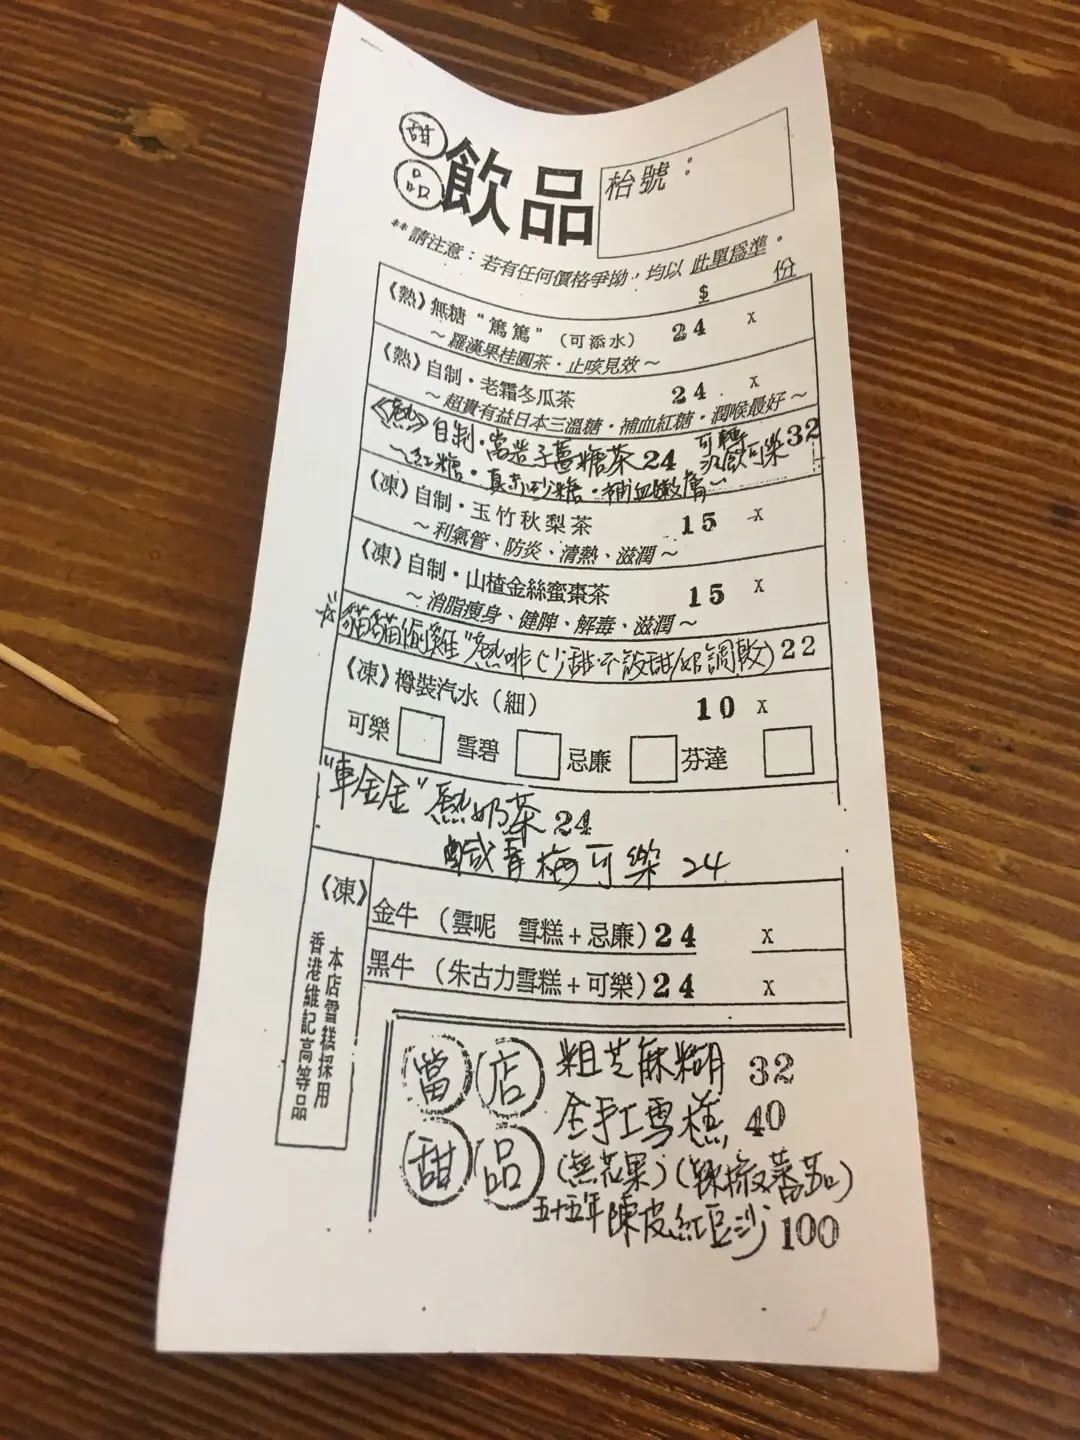 甜品 飲品 枱號：
**請注意：若有任何價格爭拗，均以 此單為準。
$ 份
《熱》無糖“篤篤”（可添水） 24 x
～羅漢果桂圓茶·止咳見效～
《熱》自制·老霜冬瓜茶 24 x
～超貴有益日本三溫糖·補血紅糖·潤喉最好～
《熱》自制·當莣子薑糖茶 24 可轉 32
～紅糖·真赤砂糖·補血嫩膚～ 沉飲可樂
《凍》自制·玉竹秋梨茶 15 x
～利氣管、防炎、清熱、滋潤～
《凍》自制·山楂金絲蜜棗茶 15 x
～消脂瘦身、健脾、解毒、滋潤～
☆貓貓 "熱啡(少甜·不設甜/奶調教) 22
《凍》樽裝汽水（細） 10 x
可樂 雪碧 忌廉 芬達
“車金金”熱奶茶 24
鹹青梅可樂 24
《凍》
金牛（雲呢 雪糕+忌廉）24 x
黑牛（朱古力雪糕+可樂）24 x
本店雪糕採用
香港維記高等品
當店甜品
粗芝麻糊 32
全手工雪糕 40
(無花果) (辣椒蕃茄)
五十五年陳皮紅豆沙 100